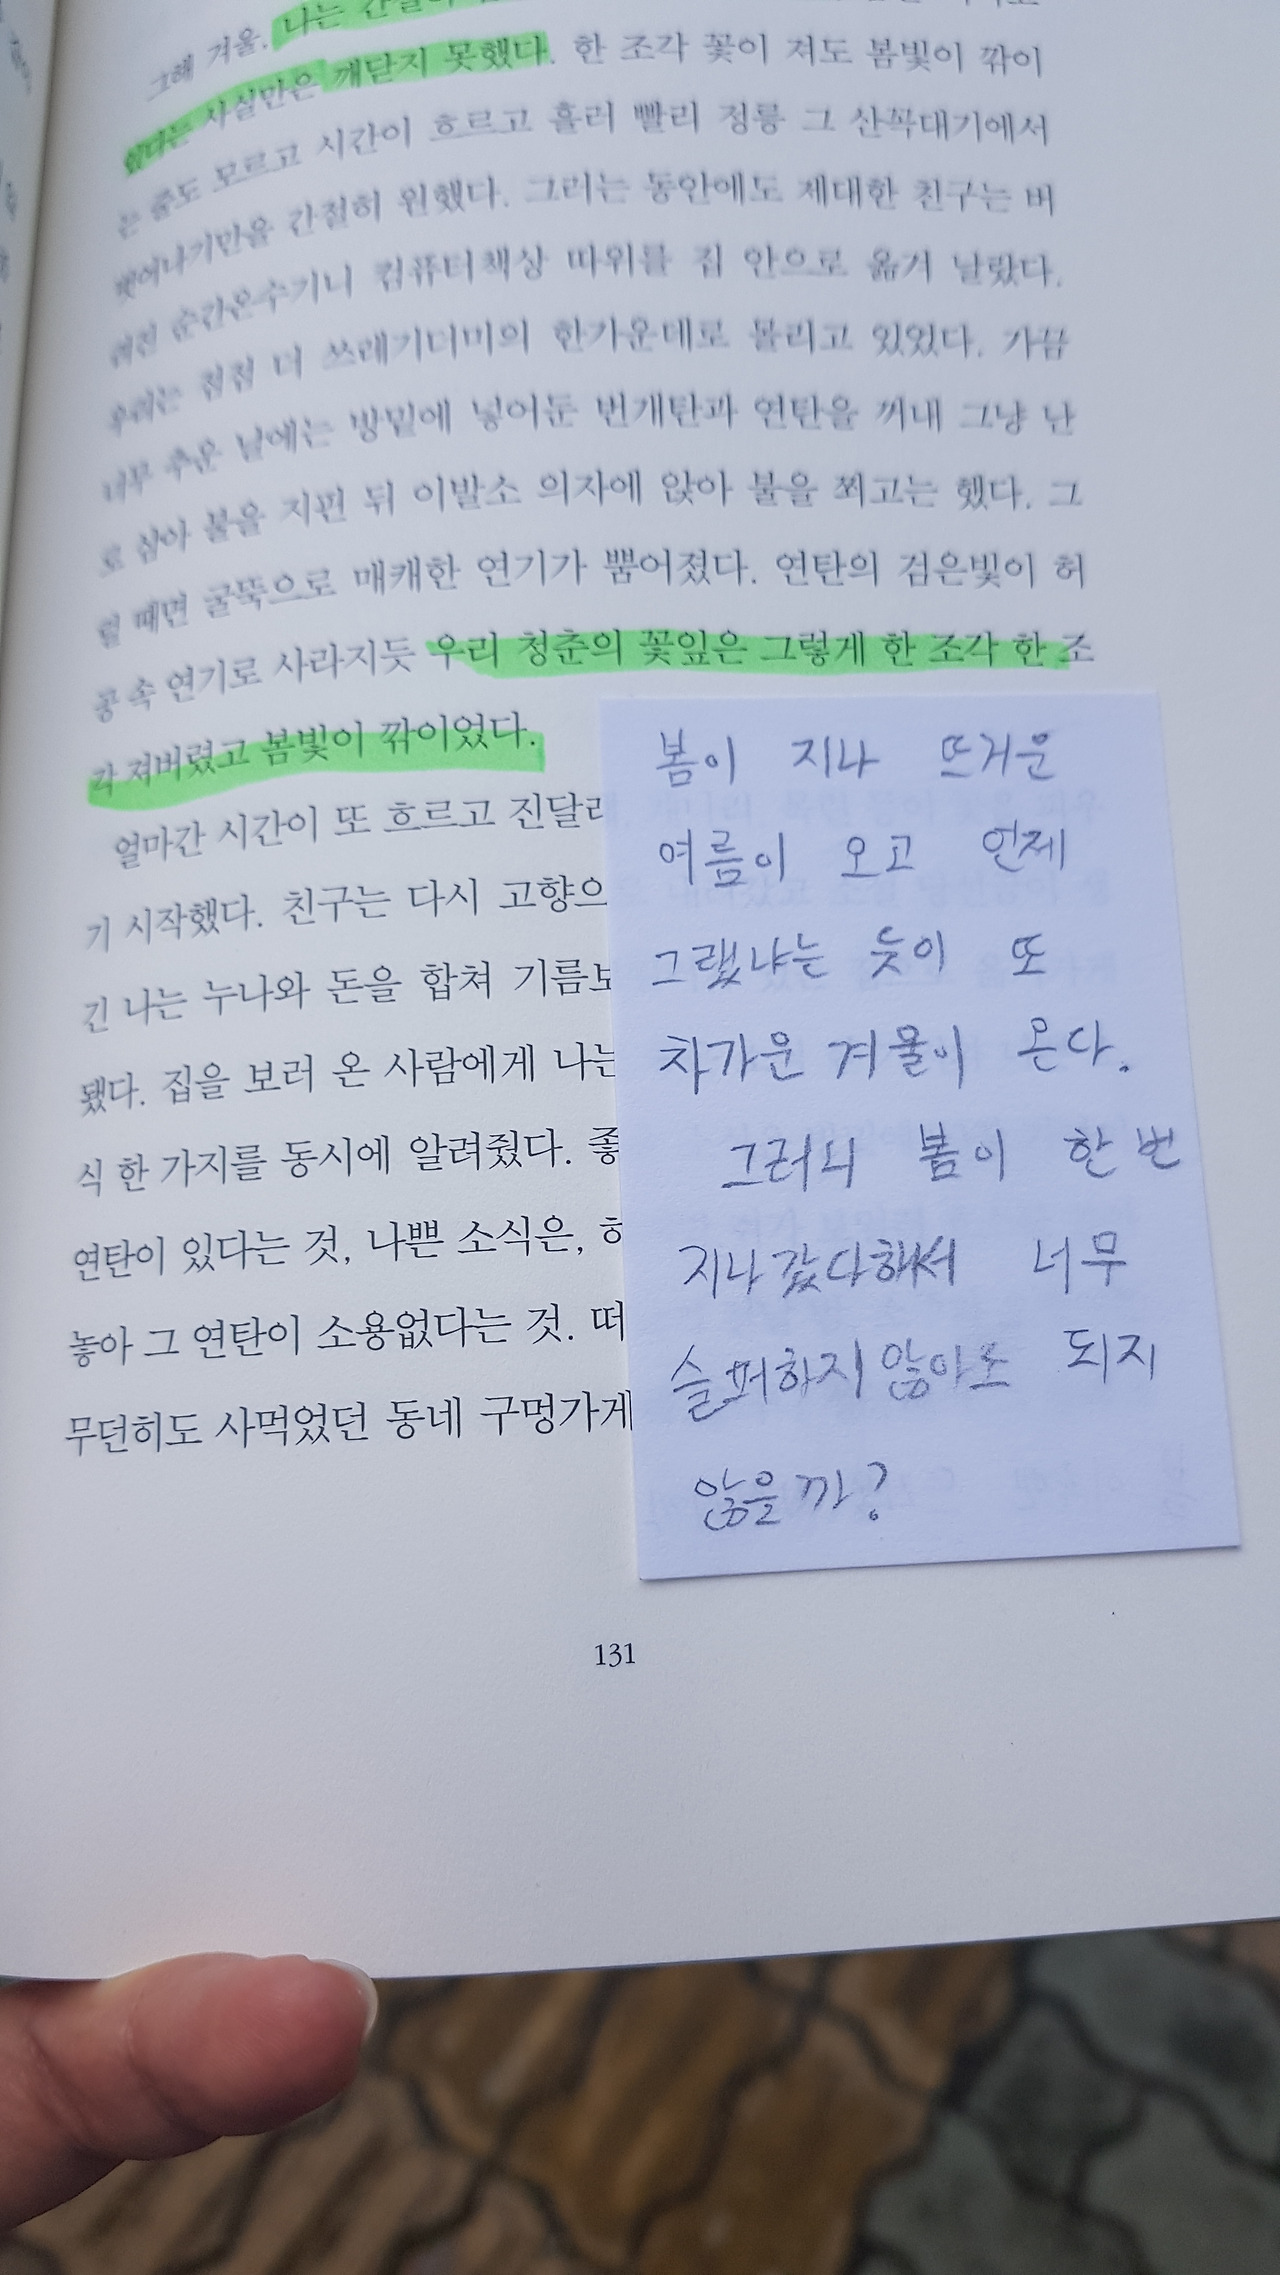 그해 겨울, 나는 간절
있다는 사실만은 깨닫지 못했다. 한 조각 꽃이 져도 봄빛이 깎이
는 줄도 모르고 시간이 흐르고 흘러 빨리 정릉 그 산꼭대기에서
벗어나기만을 간절히 원했다. 그러는 동안에도 제대한 친구는 버
려진 순간온수기니 컴퓨터책상 따위를 집 안으로 옮겨 날랐다.
우리는 점점 더 쓰레기더미의 한가운데로 몰리고 있었다. 가끔
너무 추운 날에는 방밑에 넣어둔 번개탄과 연탄을 꺼내 그냥 난
로 삼아 불을 지핀 뒤 이발소 의자에 앉아 불을 쬐고는 했다. 그
럴 때면 굴뚝으로 매캐한 연기가 뿜어졌다. 연탄의 검은빛이 허
공 속 연기로 사라지듯 우리 청춘의 꽃잎은 그렇게 한 조각 한 조
각 져버렸고 봄빛이 깎이었다.
얼마간 시간이 또 흐르고 진달래
기 시작했다. 친구는 다시 고향으
긴 나는 누나와 돈을 합쳐 기름보
됐다. 집을 보러 온 사람에게 나는
식 한 가지를 동시에 알려줬다. 좋
연탄이 있다는 것, 나쁜 소식은, 하
놓아 그 연탄이 소용없다는 것. 떠
무던히도 사먹었던 동네 구멍가게
봄이 지나 뜨거운
여름이 오고 언제
그랬냐는 듯이 또
차가운 겨울이 온다.
그러니 봄이 한 번
지나갔다해서 너무
슬퍼하지 않아도 되지
않을까?
131